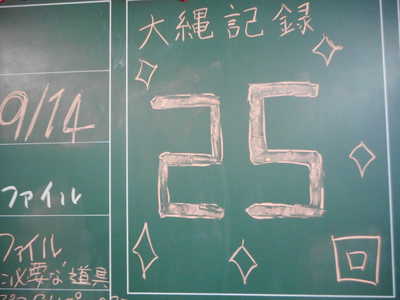 大縄記録
25
回
9/14
ファイル
ファイル
必要な道具